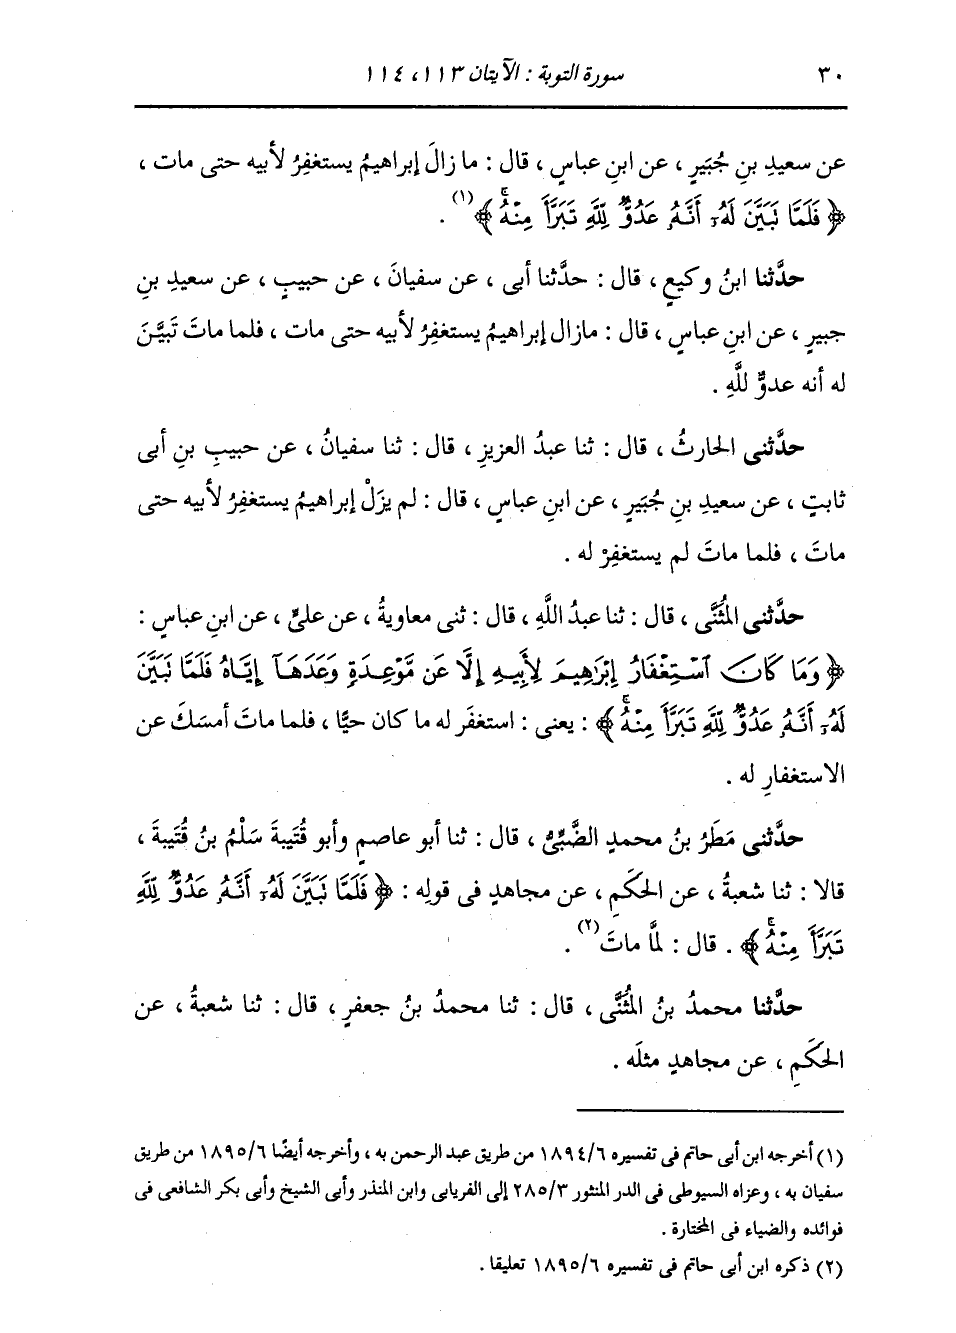 ٣٠
سورة التوبة : الآيتان ١١٣، ١١٤
عن سعيدِ بنِ جُبَيرٍ ، عن ابنِ عباسٍ ، قال : ما زالَ إبراهيمُ يستغفِرُ لأبيه حتى مات ،
﴿ فَلَمَّا نَبَيَّنَ لَهُۥ أَنَّهُۥ عَدُوٌّ لِّلَّهِ تَبَرَّأَ مِنْهُۚ ﴾ (١) .
حدَّثنا ابنُ وكيعٍ ، قال : حدَّثنا أبى ، عن سفيانَ ، عن حبيبٍ ، عن سعيدِ بنِ
جبيرٍ ، عن ابنِ عباسٍ ، قال : مازال إبراهيمُ يستغفِرُ لأبيه حتى مات ، فلما ماتَ تَبيَّنَ
له أنه عدوٌّ للَّهِ .
حدَّثنى الحارثُ ، قال : ثنا عبدُ العزيزِ ، قال : ثنا سفيانُ ، عن حبيبِ بنِ أبى
ثابتٍ ، عن سعيدِ بنِ جُبَيرٍ ، عن ابنِ عباسٍ ، قال : لم يزَلْ إبراهيمُ يستغفِرُ لأبيه حتى
ماتَ ، فلما ماتَ لم يستغفِرْ له .
حدَّثنى المُثَنَّى ، قال : ثنا عبدُ اللَّهِ ، قال : ثنى معاويةُ ، عن علىٍّ ، عن ابنِ عباسٍ :
﴿ وَمَا كَانَ ٱسْتِغْفَارُ إِبْرَٰهِيمَ لِأَبِيهِ إِلَّا عَن مَّوْعِدَةٍ وَعَدَهَآ إِيَّاهُ فَلَمَّا نَبَيَّنَ
لَهُۥ أَنَّهُۥ عَدُوٌّ لِّلَّهِ تَبَرَّأَ مِنْهُۚ ﴾ : يعنى : استغفَر له ما كان حيًّا ، فلما ماتَ أمسَكَ عن
الاستغفارِ له .
حدَّثنى مَطَرُ بنُ محمدٍ الضَّبِّىُّ ، قال : ثنا أبو عاصمٍ وأبو قُتَيبةَ سَلْمُ بنُ قُتَيبةَ ،
قالا : ثنا شعبةُ ، عن الحكَمِ ، عن مجاهدٍ فى قولِه : ﴿ فَلَمَّا نَبَيَّنَ لَهُۥ أَنَّهُۥ عَدُوٌّ لِّلَّهِ
تَبَرَّأَ مِنْهُۚ ﴾ . قال : لمَّا ماتَ (٢) .
حدَّثنا محمدُ بنُ المُثَنَّى ، قال : ثنا محمدُ بنُ جعفرٍ ، قال : ثنا شعبةُ ، عن
الحَكَمِ ، عن مجاهدٍ مثلَه .
(١) أخرجه ابن أبى حاتم فى تفسيره ١٨٩٤/٦ من طريق عبد الرحمن به ، وأخرجه أيضًا ١٨٩٥/٦ من طريق
سفيان به ، وعزاه السيوطى فى الدر المنثور ٢٨٥/٣ إلى الفريابى وابن المنذر وأبى الشيخ وأبى بكر الشافعى فى
فوائده والضياء فى المختارة .
(٢) ذكره ابن أبى حاتم فى تفسيره ١٨٩٥/٦ تعليقا .